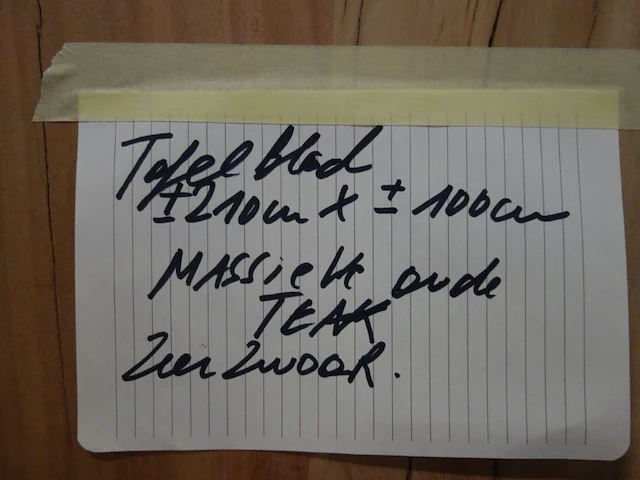 Tafelblad
±210cm X ± 100cm
MASSieve oude
TEAK
Zeer zwaaR.